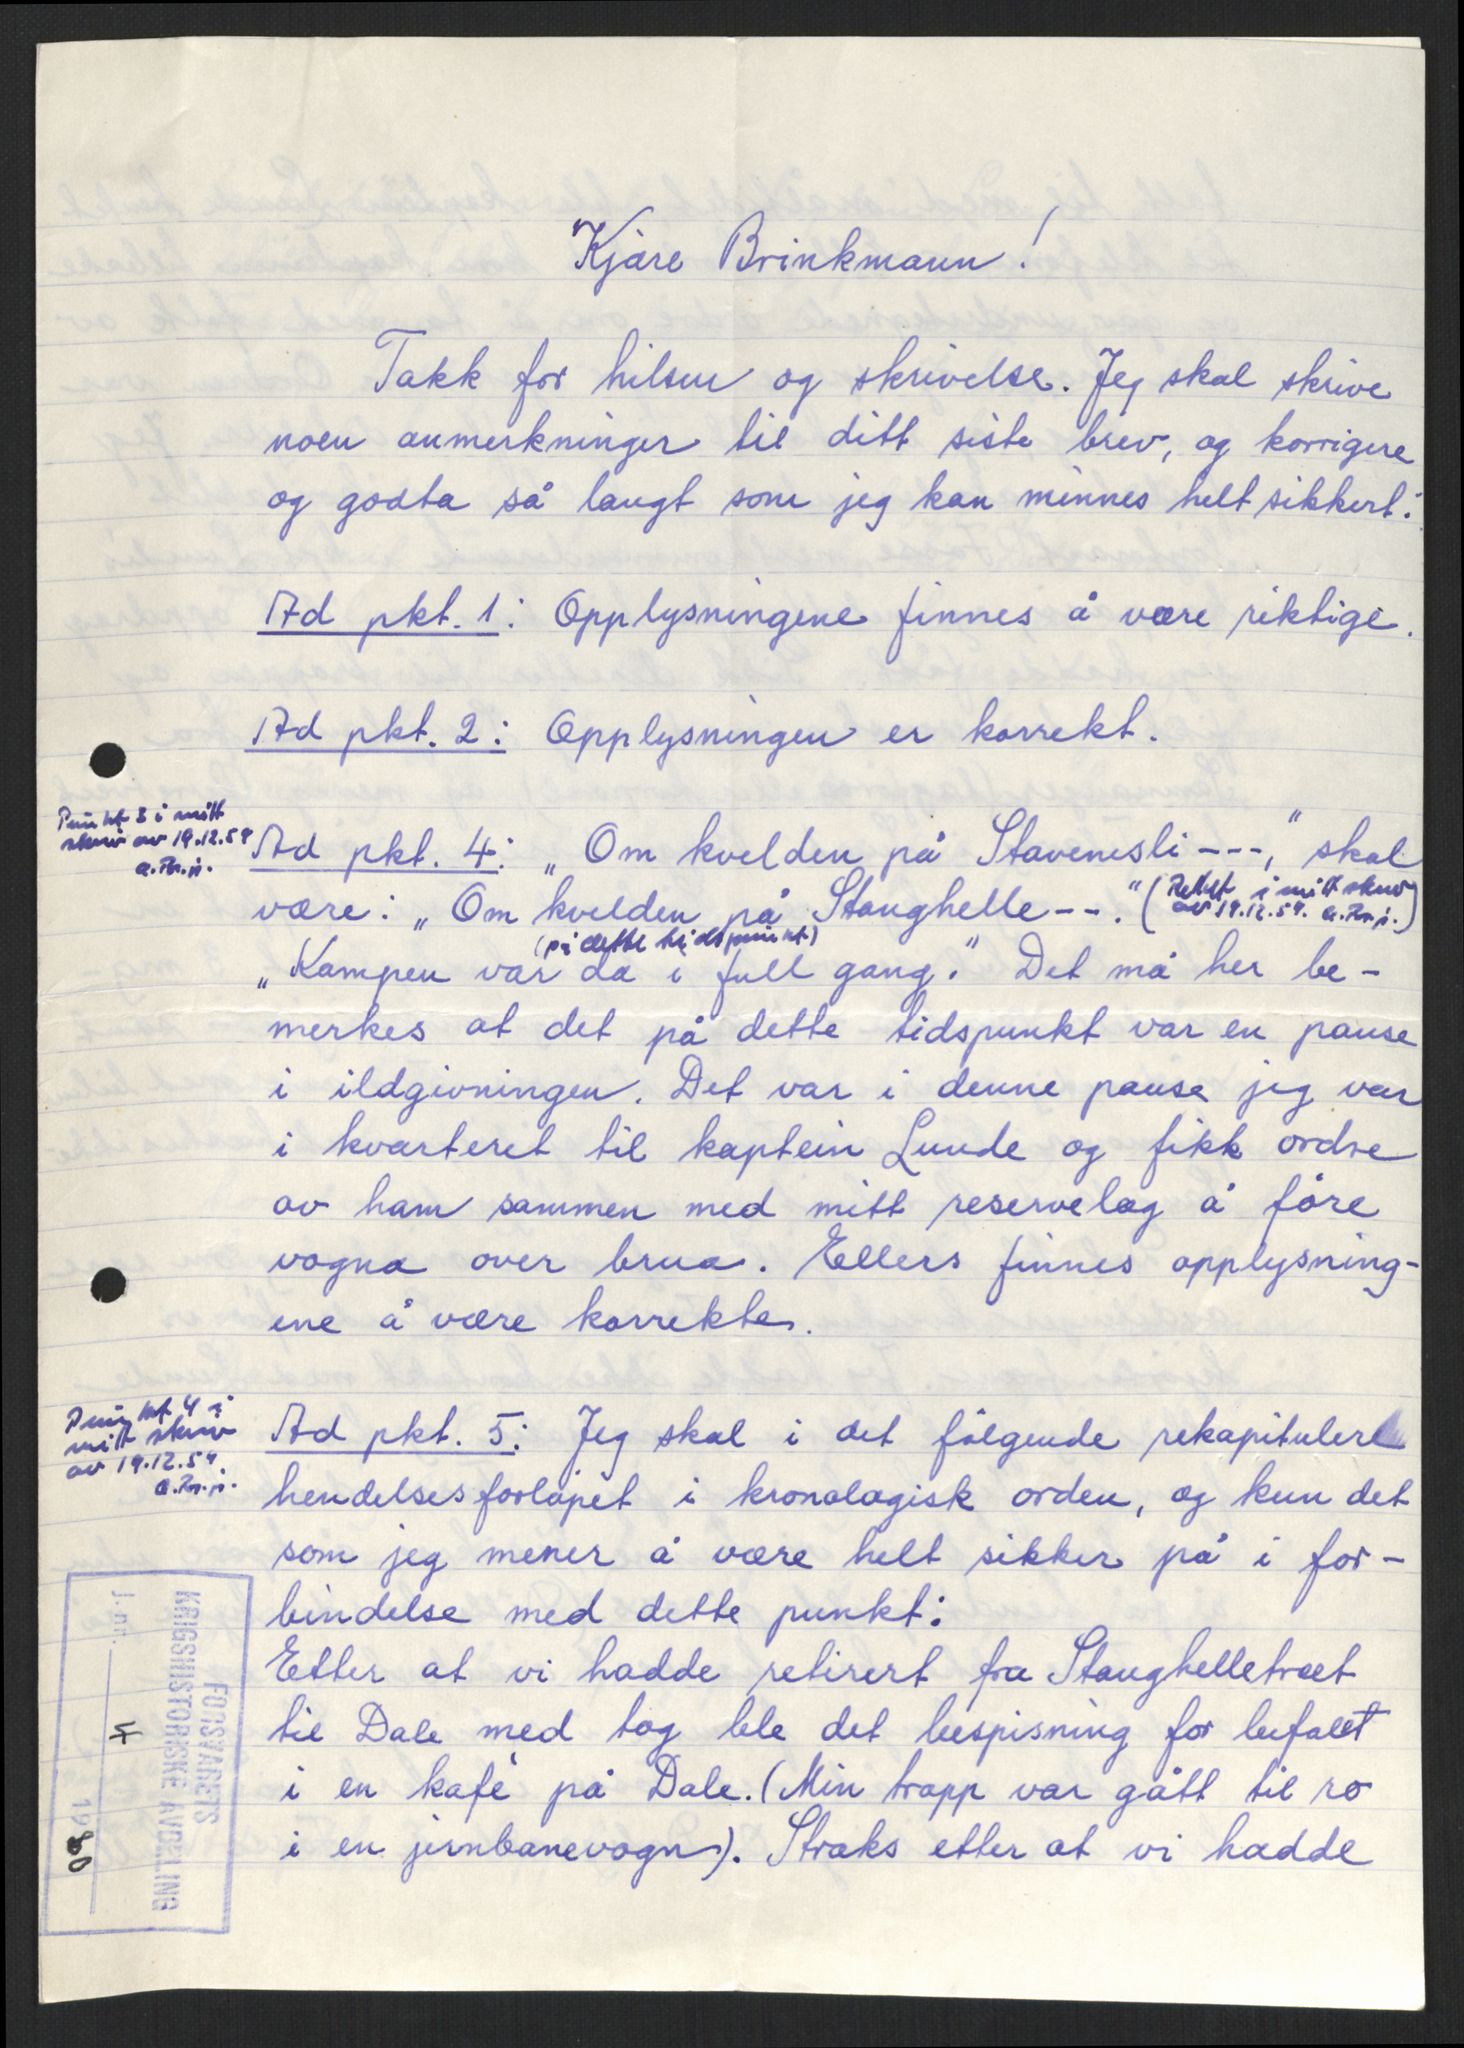 Kjære Brinkmann!
Takk for hilsen og skrivelse. Jeg skal skrive
noen anmerkninger til ditt siste brev, og korrigere
og godta så langt som jeg kan minnes helt sikkert:
Ad pkt. 1: Opplysningene finnes å være riktige.
Ad pkt. 2: Opplysningen er korrekt.
Punkt 3 i mitt
skriv av 19.12.59
Ad pkt. 4: „Om kvelden på Stavenesli ---," skal
være: „Om kvelden på Stanghelle --." (Rettet i mitt skriv
av 19.12.59.
(på dette tidspunkt)
„Kampen var da i full gang." Det må her be-
merkes at det på dette tidspunkt var en pause
i ildgivningen. Det var i denne pause jeg var
i kvarteret til kaptein Lunde og fikk ordre
av ham sammen med mitt reservelag å føre
vogna over brua. Ellers finnes opplysning-
ene å være korrekte.
Punkt 4 i
mitt skriv
av 19.12.59
Ad pkt. 5: Jeg skal i det følgende rekapitulere
hendelsesforløpet i kronologisk orden, og kun det
som jeg mener å være helt sikker på i for-
bindelse med dette punkt:
Etter at vi hadde retirert fra Stanghelletraet
til Dale med tog ble det bespisning for befalet
i en kafé på Dale. (Min tropp var gått til ro
i en jernbanevogn). Straks etter at vi hadde
FORSVARETS
KRIGSHISTORISKE AVDELING
J. nr.
19